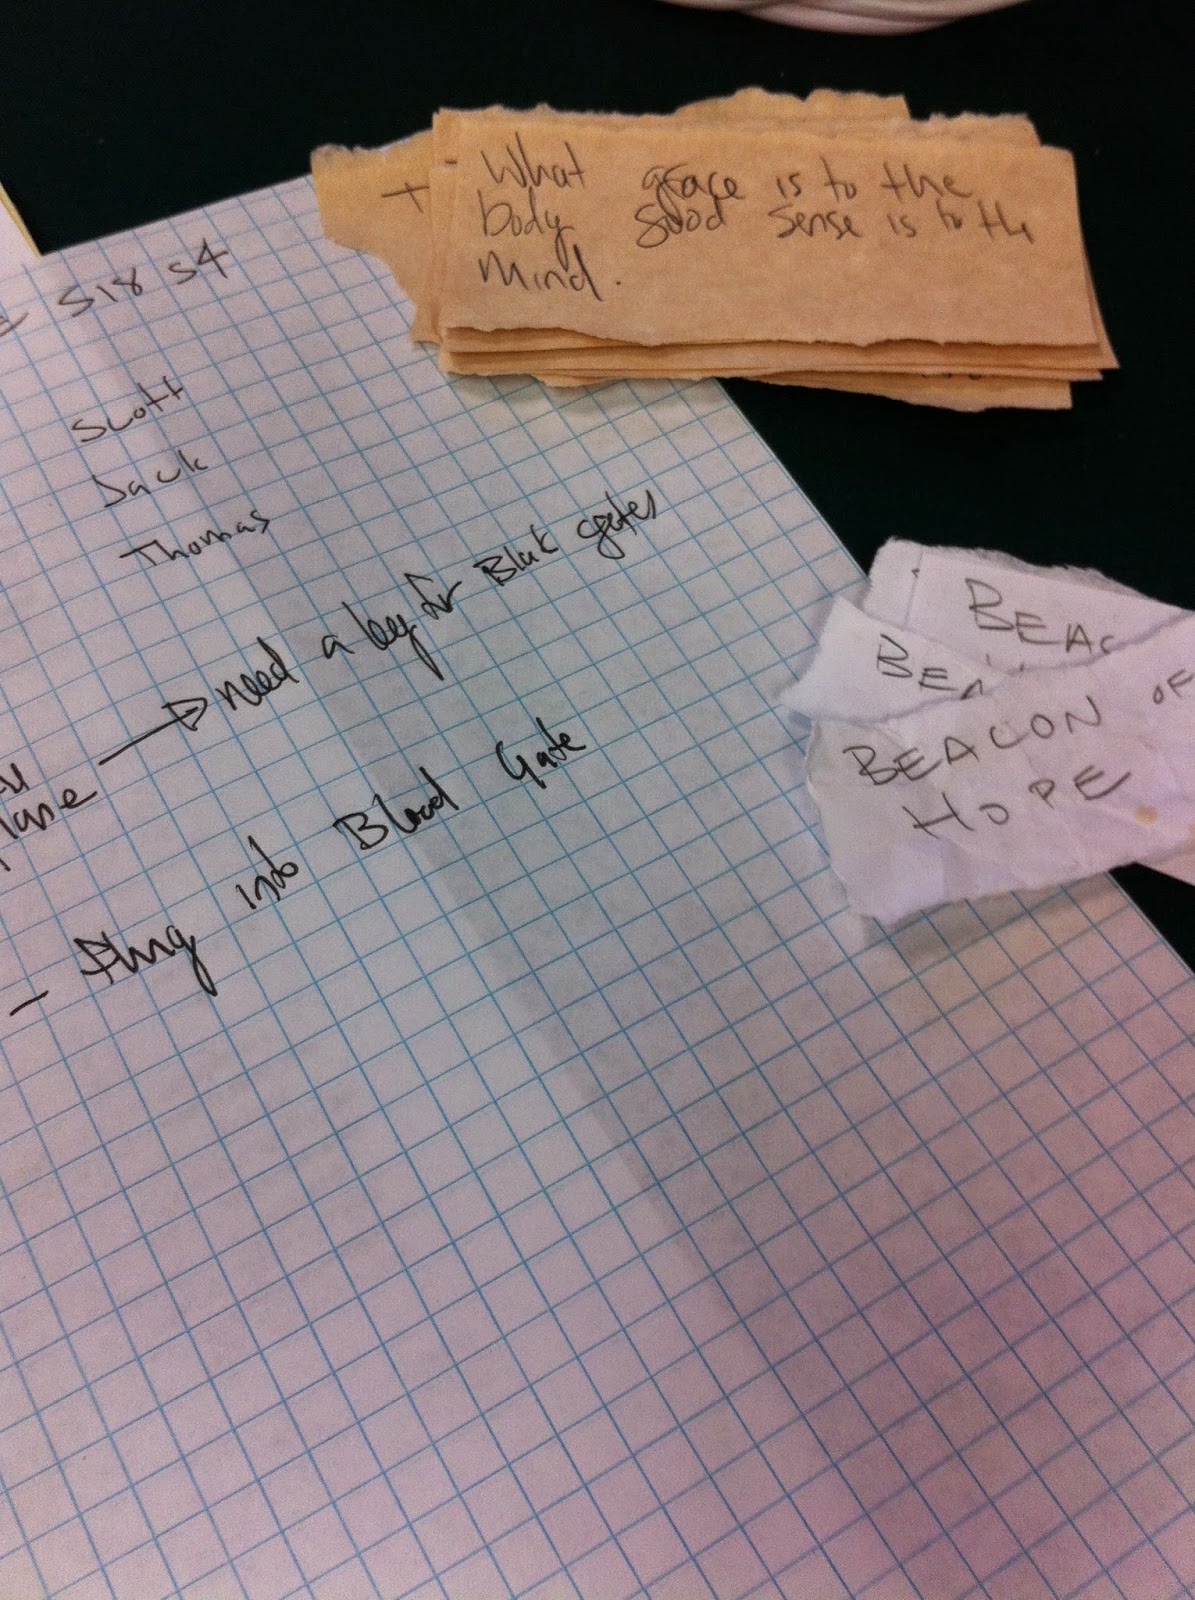 What grace is to the
body good sense is to th
Mind.
+
S18 S4
Scott
Jack
Thomas
→ need a key for Black gates
- Plug into Blood Gate
BEAC
BEA
BEACON OF
HOPE